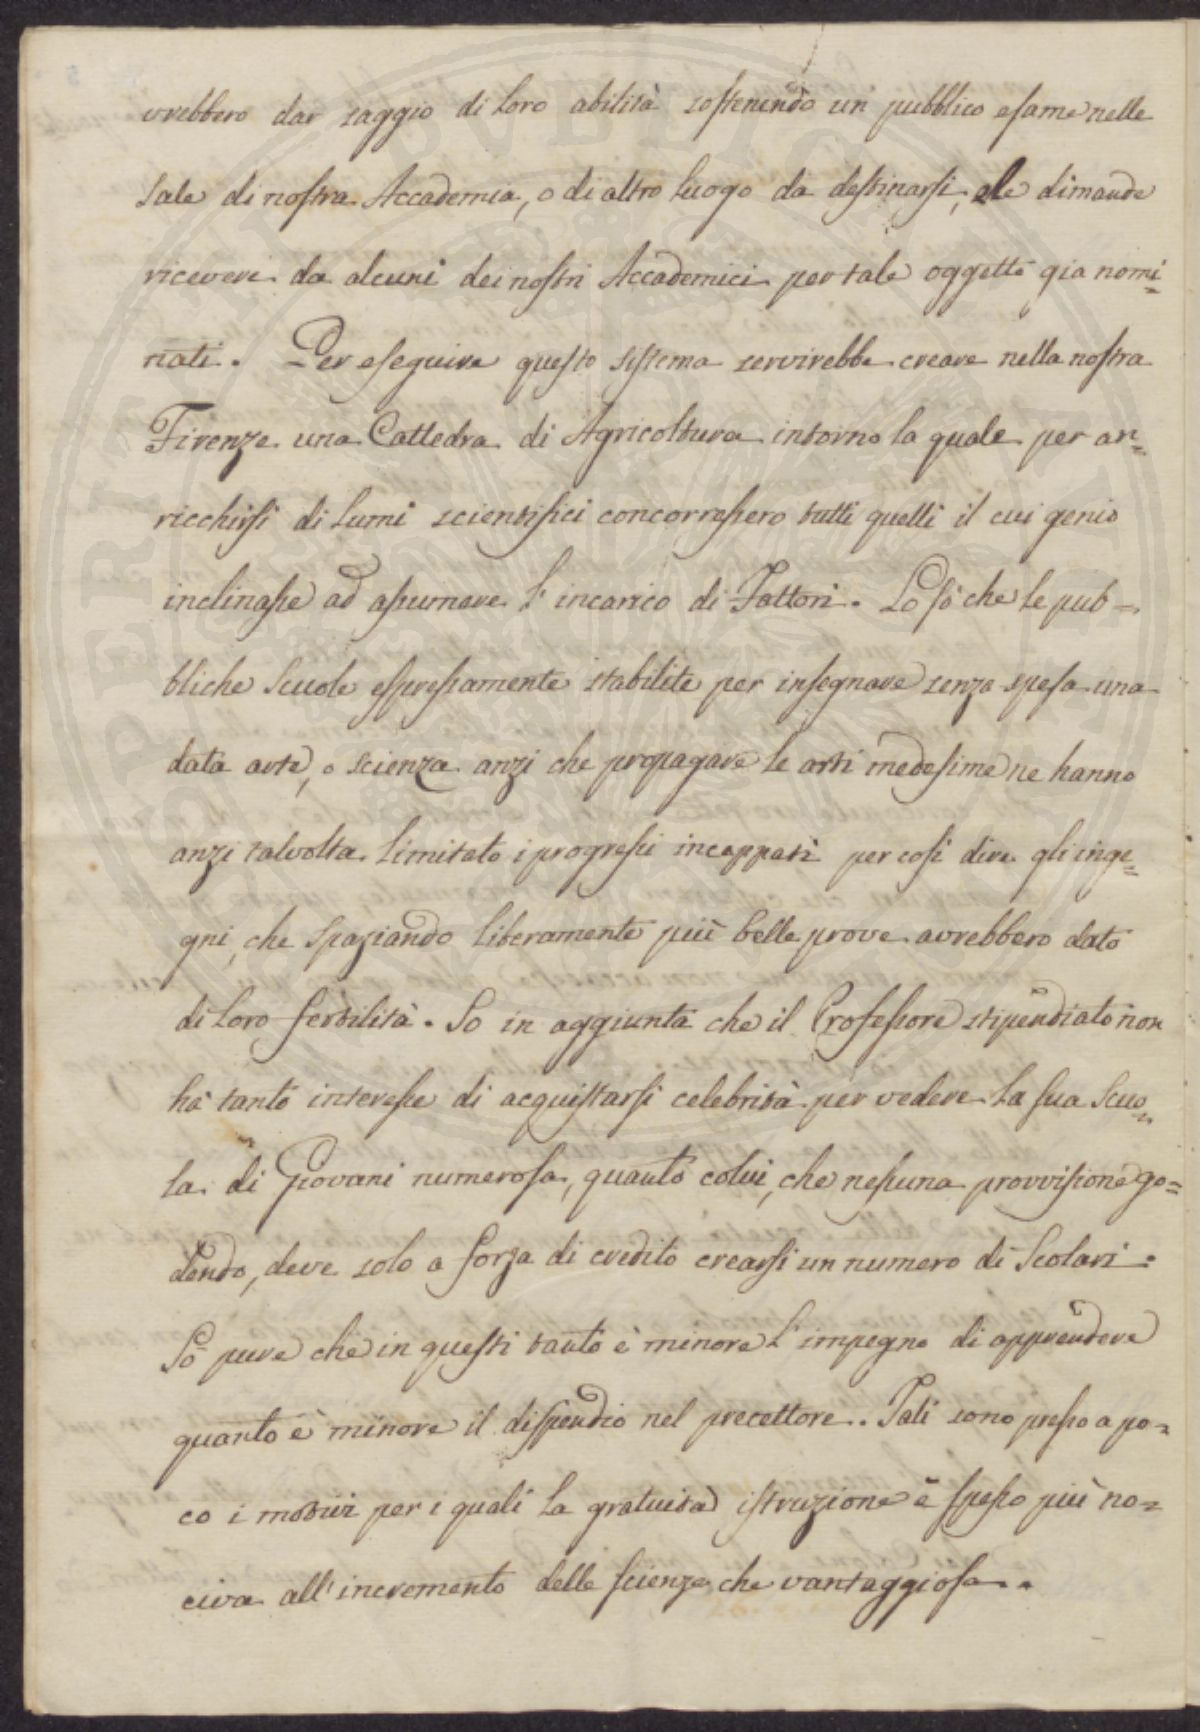 vrebbero dar saggio di loro abilità sostenendo un pubblico esame nelle
sale di nostra Accademia, o di altro luogo da destinarsi, e le dimande
ricevere da alcuni dei nostri Accademici per tale oggetto gia nomi=
nati. Per eseguire questo sistema servirebbe creare nella nostra
Firenze una Cattedra di Agricoltura intorno la quale per ar=
ricchirsi di lumi scientifici concorressero tutti quelli il cui genio
inclinasse ad assumere l'incarico di Fattori. Lo sò che le pub=
bliche Scuole espressamente stabilite per insegnare senza spesa una
data arte, o scienza anzi che propagare le arti medesime ne hanno
anzi talvolta limitato i progressi incappati per così dire gli inge=
gni, che spaziando liberamente più belle prove avrebbero dato
di loro fertilità. So in aggiunta che il Professore stipendiato non
ha tanto interesse di acquistarsi celebrità per vedere la sua Scuo=
la di Giovani numerosa, quanto colui, che nessuna provvisione go=
dendo, deve solo a forza di credito crearsi un numero di Scolari.
Sò pure che in questi tanto è minore l'impegno di apprendere
quanto è minore il dispendio nel precettore. Tali sono presso a po=
co i motivi per i quali la gratuita istruzione è spesso più no=
civa all'incremento delle scienze che vantaggiosa.